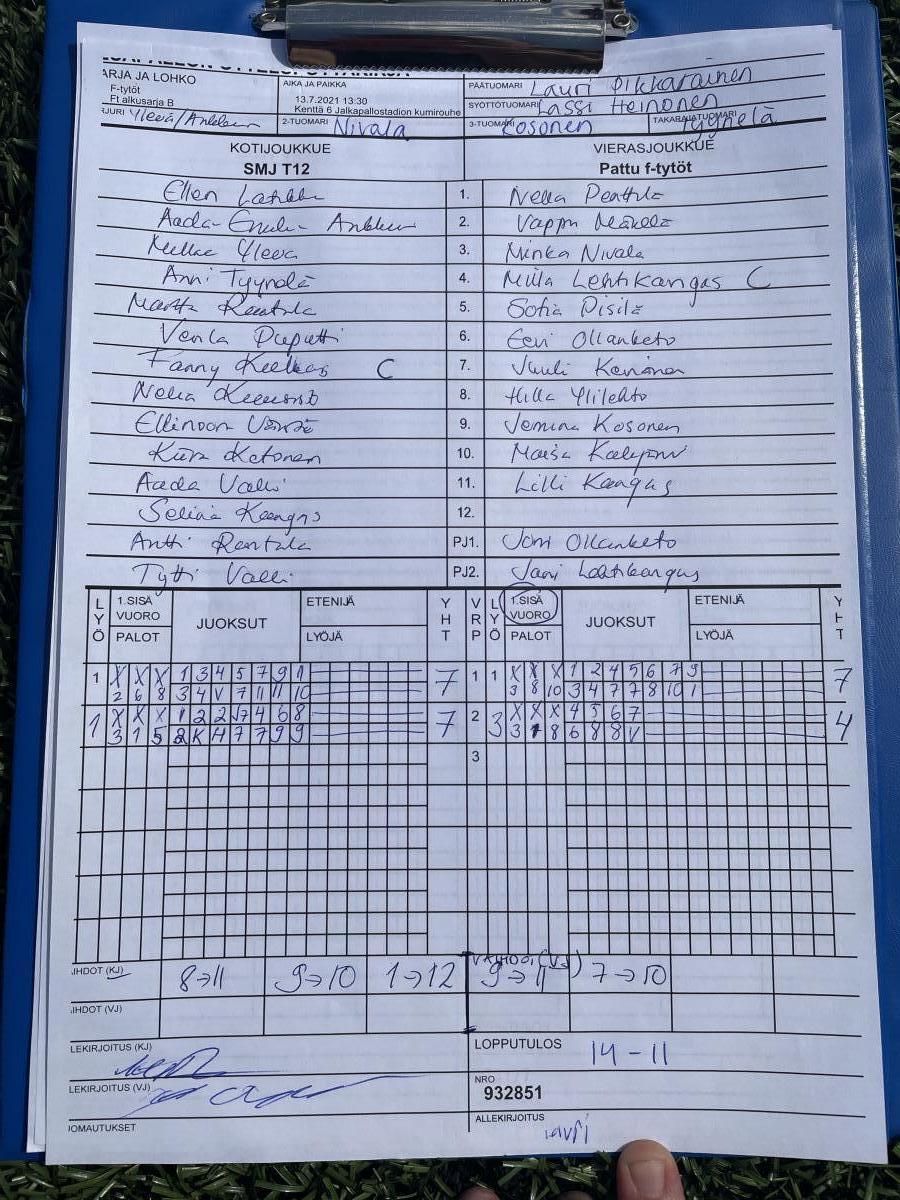 ARJA JA LOHKO
F-tytöt
Ft alkusarja B
AIKA JA PAIKKA
13.7.2021 13:30
Kenttä 6 Jalkapallostadion kumirouhe
PÄÄTUOMARI Lauri Pikkarainen
SYÖTTÖTUOMARI Lassi Heinonen
2-TUOMARI Nivala
3-TUOMARI Kosonen
TAKARAJATUOMARI Tyynelä
KOTIJOUKKUE VIERASJOUKKUE
SMJ T12 Pattu f-tytöt
Ellen 1. Nella Penttilä
2. Vappu Mäkelä
3. Minka Nivala
Anni Tyynelä 4. Miila Lehtikangas C
Martta Rentola 5. Sofia Pisilä
Venla Puputti 6. Eevi Ollanketo
Fanny C 7. Juuli
8. Hilla Ylilehto
Ellinoora 9. Jemina Kosonen
Kiira Ketonen 10. Maisa
Aada Valli 11. Lilli Kangas
Selina Kangas 12.
Antti Rentola PJ1. Joni Ollanketo
Tytti Valli PJ2. Jani Lehtikangas
LYÖ 1.SISÄ VUORO PALOT JUOKSUT ETENIJÄ LYÖJÄ YHT VRP LYÖ 1.SISÄ VUORO PALOT JUOKSUT ETENIJÄ LYÖJÄ YHT
1 X X X 1 3 4 5 7 9 11 7 1 1 X X X 1 2 4 5 6 7 9 7
2 6 8 3 4 V 7 11 11 10 3 8 10 3 4 7 7 8 10 1
1 X X X 1 2 2 7 4 6 8 7 2 3 X X X 4 5 6 7 4
3 1 5 2 K 4 7 7 9 9 3 1 8 6 8 8 V
3
IHDOT (KJ) 8→11 9→10 1→12 VAIHDOT (VJ) 9→11 7→10
IHDOT (VJ)
LEKIRJOITUS (KJ)
LOPPUTULOS 14-11
LEKIRJOITUS (VJ)
NRO
932851
IOMAUTUKSET
ALLEKIRJOITUS